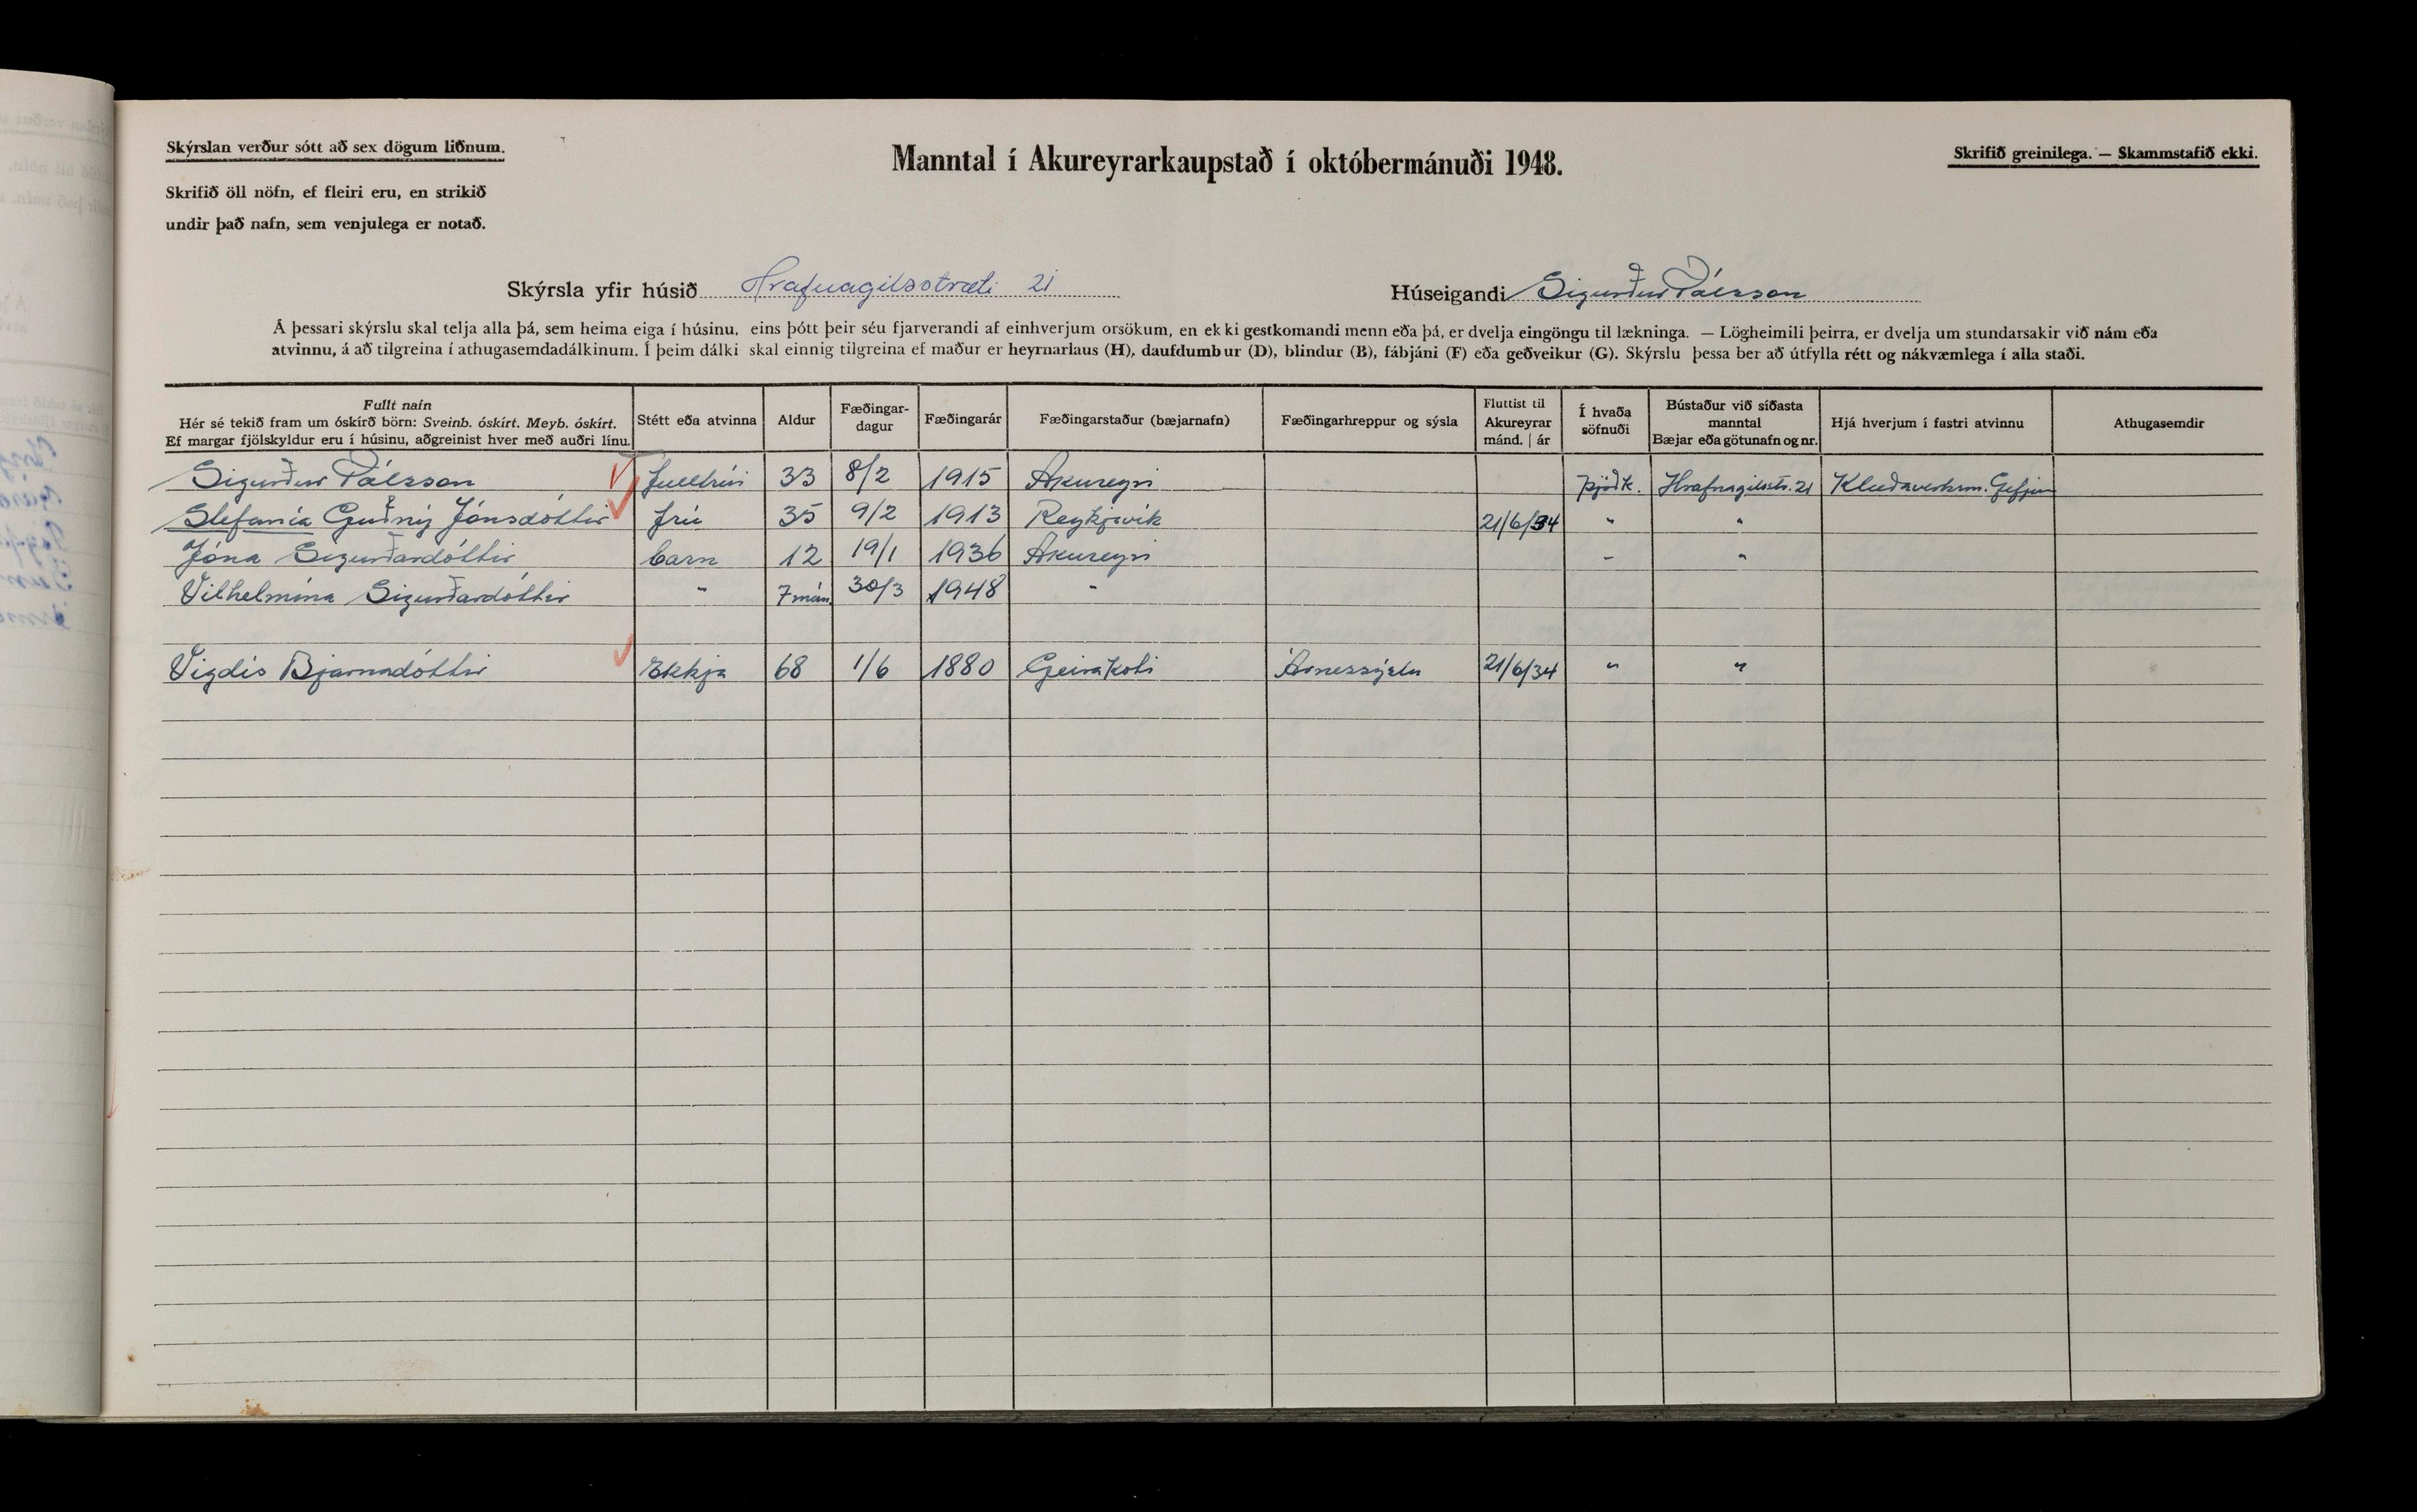 Skýrslan verður sótt að sex dögum liðnum.
Skrifið öll nöfn, ef fleiri eru, en strikið
undir það nafn, sem venjulega er notað.
Manntal í Akureyrarkaupstað í októbermánuði 1948.
Skrifið greinilega. — Skammstafið ekki.
Skýrsla yfir húsið Hrafnagilsstræti 21
Húseigandi Sigurður Pálsson
Á þessari skýrslu skal telja alla þá, sem heima eiga í húsinu, eins þótt þeir séu fjarverandi af einhverjum orsökum, en ekki gestkomandi menn eða þá, er dvelja eingöngu til lækninga. — Lögheimili þeirra, er dvelja um stundarsakir við nám eða
atvinnu, á að tilgreina í athugasemdadálkinum. Í þeim dálki skal einnig tilgreina ef maður er heyrnarlaus (H), daufdumbur (D), blindur (B), fábjáni (F) eða geðveikur (G). Skýrslu þessa ber að útfylla rétt og nákvæmlega í alla staði.
Fullt nafn
Hér sé tekið fram um óskírð börn: Sveinb. óskírt. Meyb. óskírt.
Ef margar fjölskyldur eru í húsinu, aðgreinist hver með auðri línu.
Stétt eða atvinna
Aldur
Fæðingar-
dagur
Fæðingarár
Fæðingarstaður (bæjarnafn)
Fæðingarhreppur og sýsla
Fluttist til
Akureyrar
mánd. | ár
Í hvaða
söfnuði
Bústaður við síðasta
manntal
Bæjar eða götunafn og nr.
Hjá hverjum í fastri atvinnu
Athugasemdir
Sigurður Pálsson fulltrúi 33 8/2 1915 Akureyri Þjóðk. Hrafnagilsstr. 21 Klæðaverksm. Gefjun
Stefanía Guðný Jónsdóttir frú 35 9/2 1913 Reykjavík 21/6/34 " "
Jóna Sigurðardóttir barn 12 19/1 1936 Akureyri " "
Vilhelmína Sigurðardóttir " 7 mán. 30/3 1948 "
Vigdís Bjarnadóttir Ekkja 68 1/6 1880 Geirakoti Árnessýslu 21/6/34 " "